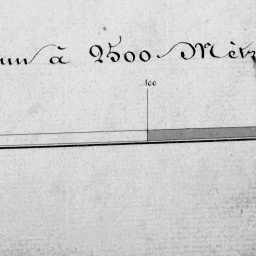 un à 2500 Mèt
100